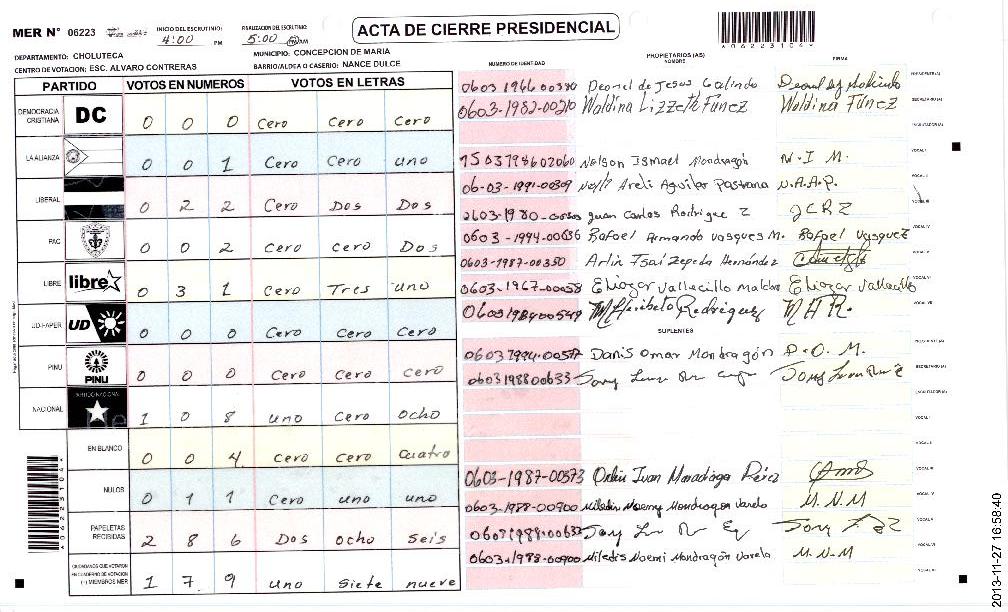 MER N° 06223
INICIO DEL ESCRUTINIO:
4:00 PM
FINALIZACION DEL ESCRUTINIO:
5:00
ACTA DE CIERRE PRESIDENCIAL
A06223104A
DEPARTAMENTO: CHOLUTECA
MUNICIPIO: CONCEPCION DE MARIA
CENTRO DE VOTACION: ESC. ALVARO CONTRERAS
BARRIO/ALDEA O CASERIO: NANCE DULCE
PARTIDO VOTOS EN NUMEROS VOTOS EN LETRAS
DEMOCRACIA CRISTIANA DC 0 0 0 Cero Cero Cero
LA ALIANZA 0 0 1 Cero Cero uno
LIBERAL 0 2 2 Cero Dos Dos
PAC 0 0 2 Cero cero Dos
LIBRE libre 0 3 1 Cero Tres uno
UD-FAPER UD 0 0 0 Cero Cero Cero
PINU PINU 0 0 0 Cero Cero cero
NACIONAL 1 0 8 uno Cero ocho
EN BLANCO 0 0 4 Cero Cero cuatro
NULOS 0 1 1 Cero uno uno
PAPELETAS RECIBIDAS 2 8 6 Dos ocho Seis
CIUDADANOS QUE VOTARON EN CUADERNO DE VOTACION (+) MIEMBROS MER 1 7 9 uno Siete nueve
NUMERO DE IDENTIDAD
PROPIETARIOS (AS)
NOMBRE
FIRMA
de Jesus Galindo
0603-1982-00210 Waldina Lizzeth Funez Waldina Funez
Nelson Ismael Mondragón N.I M.
06-03-1991-00309 Areli Aguilar Pastrana N.A.A.P.
Juan Carlos Rodriguez JCRZ
0603-1994-00636 Rafael Armando Vasques M. Rafael Vasquez
0603-1987-00350 Arlin Isai Zepeda Hernández
0603-1967-00058 Eliazar Vallecillo Eliazar Vallecillo
Heriberto Rodriguez M H R.
SUPLENTES
Danis Omar Mondragón D.O.M.
0603198800633
0603-1987-00573 Ivan Pérez
0603-1988-00900 Miledis Noemy Mondragon Varela M.N.M
0603198800633
0603-1988-00900 Miledis Noemi Mondragón Varela M.N.M
2013-11-27 16:58:40